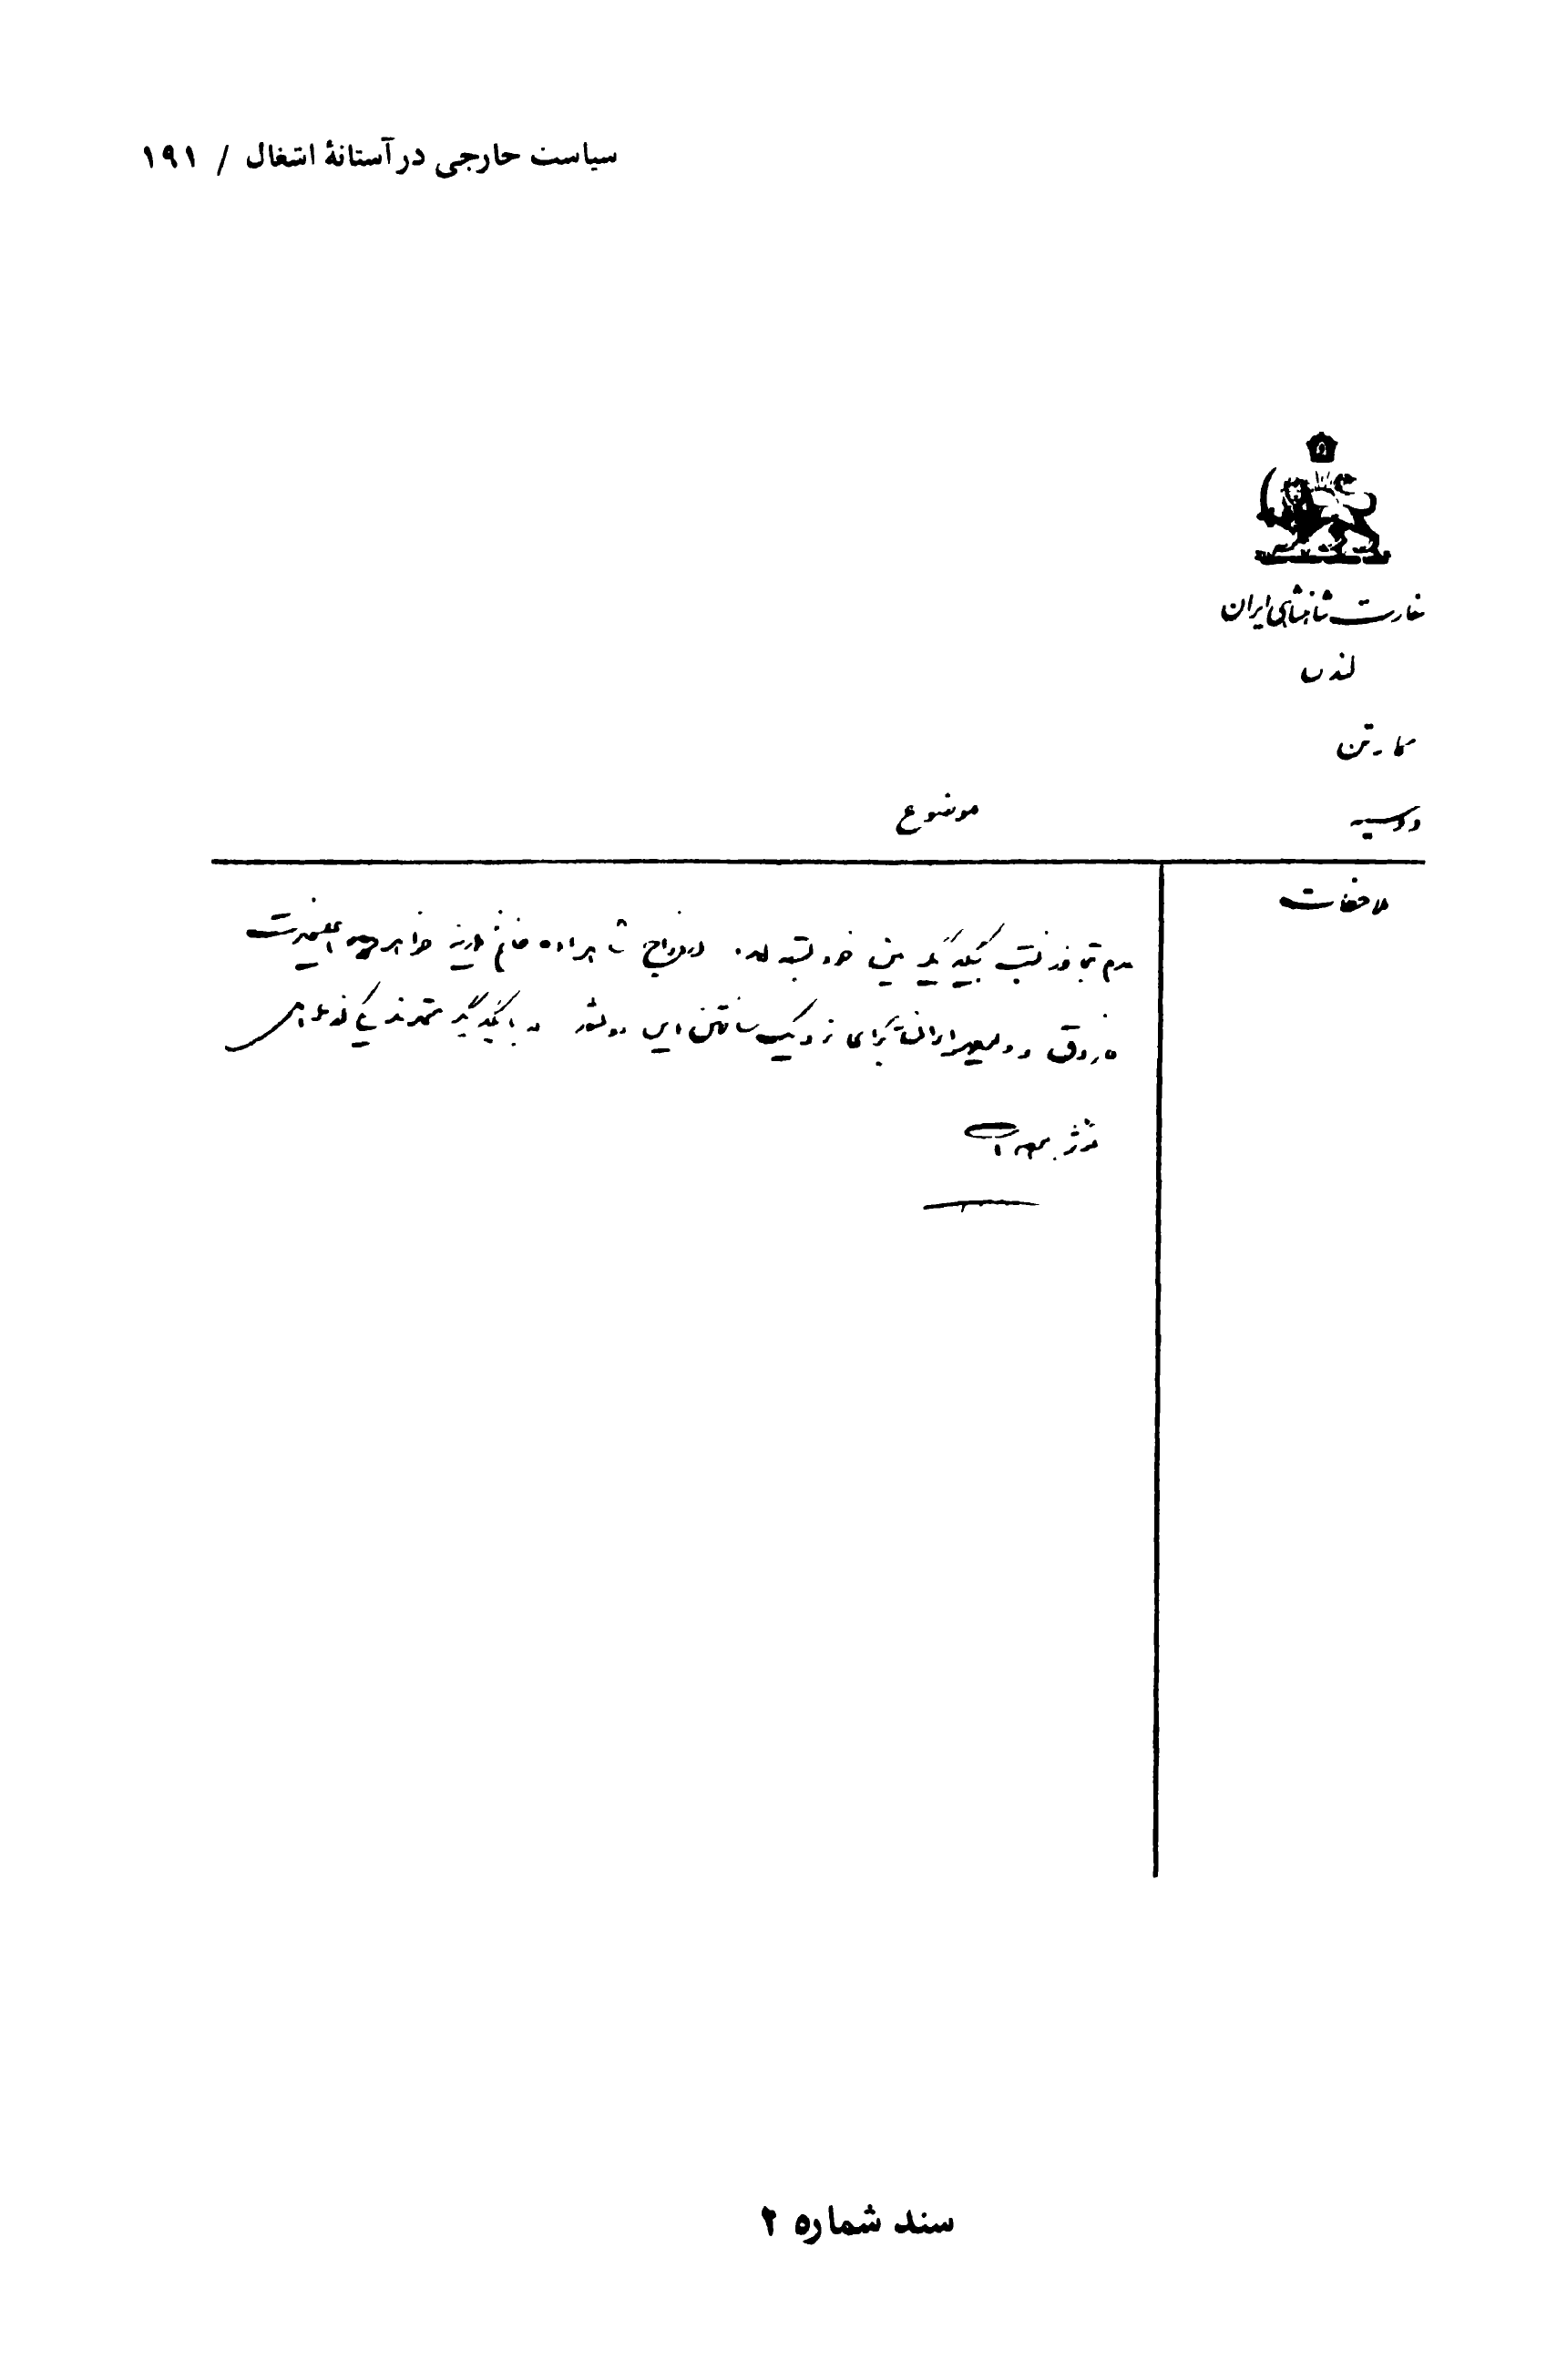 سیاست خارجی در آستانهٔ اشغال / ۱۹۱
سفارت شاهنشاهی ایران
لندن
موضوع
دوسیه
ملاحظات
عدم تجاوز نسبت بیکدیگر بین خود بسته‌اند. ازدواج شاهزاده خانم فوزیه خواهر اعلیحضرت
فاروق و ولیعهد ایران برای نزدیک ساختن این دو کشور به یکدیگر
سند شماره ۲